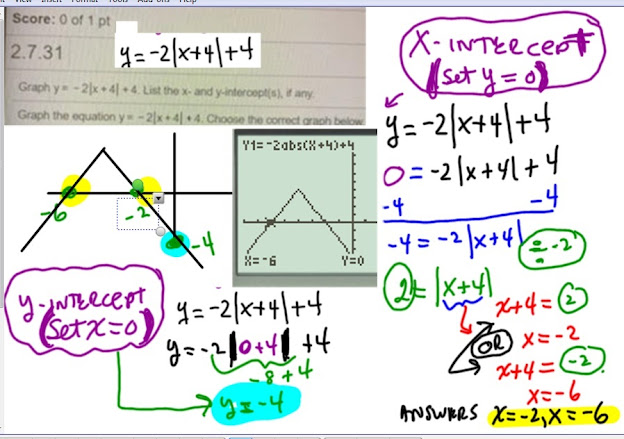 Score: 0 of 1 pt
2.7.31
y=-2|x+4|+4
Graph y = - 2|x + 4| + 4. List the x- and y-intercept(s), if any.
Graph the equation y = - 2|x + 4| + 4. Choose the correct graph below
-6
-2
-4
Y1=-2abs(X+4)+4
X=-6 Y=0
y-INTERCEPT
(Set x=0)
y=-2|x+4|+4
y=-2|0+4|+4
-8+4
y=-4
X-INTERCEPT
(Set y=0)
y=-2|x+4|+4
0=-2|x+4|+4
-4 -4
-4=-2|x+4| ÷-2
2=|x+4|
x+4=2
OR x=-2
x+4=-2
x=-6
ANSWERS x=-2, x=-6